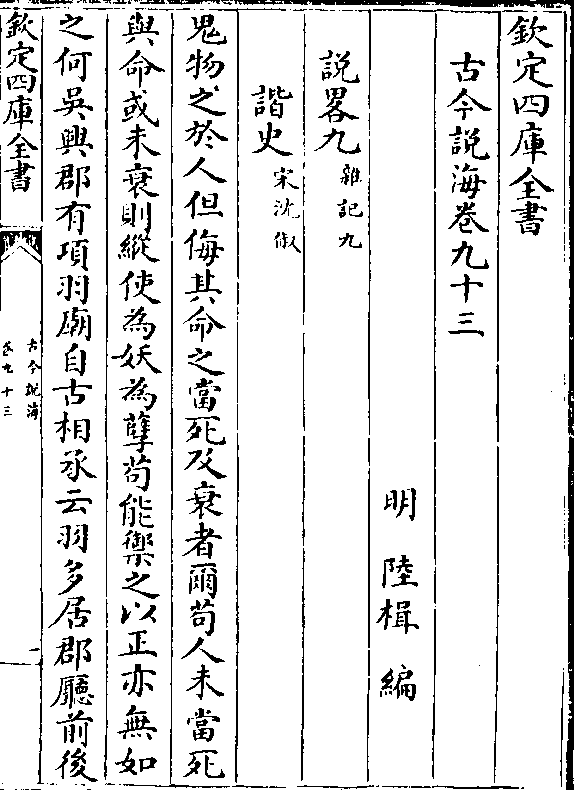 欽定四庫全書
古今說海卷九十三
明 陸楫 編
說畧九 雜記九
諧史 宋沈俶
鬼物之於人但侮其命之當死及衰者爾苟人未當死
與命或未衰則縱使為妖為孽苟能禦之以正亦無如
之何吳興郡有項羽廟自古相承云羽多居郡廳前後
欽定四庫全書
古今說海
卷九十三
一